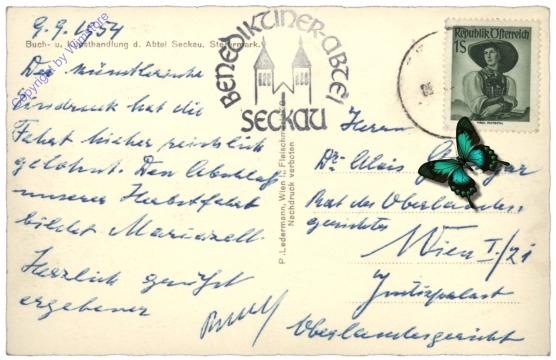 9.9.1954
Buch- u. Kunsthandlung d. Abtei Seckau, Steiermark.
Copyright by Wimstore
Der künstlerische
Eindruck hat die
Fahrt hieher reichlich
gelohnt. Den Abschluß
unserer Herbstfahrt
bildet Mariazell.
Herzlich grüßt
ergebener
BENEDIKTINER-ABTEI
SECKAU
P. Ledermann, Wien I., Fleischmarkt
Nachdruck verboten
Republik Österreich
1S
Herrn
Dr. Alois
Rat des Oberlandes-
gerichtes
Wien I./21
Justizpalast
Oberlandesgericht